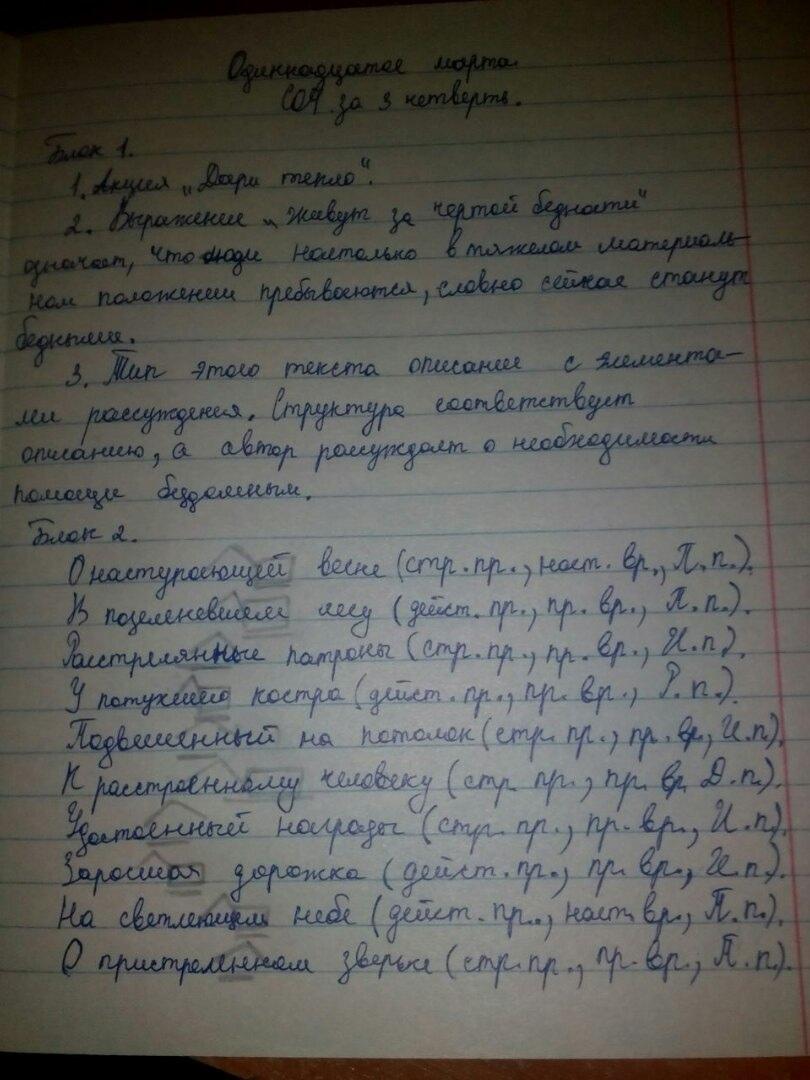 Одиннадцатое марта.
СОЧ за 3 четверть.
Блок 1.
1. Акция „Дари тепло“.
2. Выражение „живут за чертой бедности“
означает, что люди настолько в тяжелом материаль-
ном положении пребываются, словно сейчас станут
бедными.
3. Тип этого текста описание с элемента-
ми рассуждения. Структура соответствует
описанию, а автор рассуждает о необходимости
помощи бездомным.
Блок 2.
О наступающей весне (стр. пр., наст. вр., П. п.).
В позеленевшем лесу (дейст. пр., пр. вр., П. п.).
Расстрелянные патроны (стр. пр., пр. вр., И. п.).
У потухшего костра (дейст. пр., пр. вр., Р. п.).
Подвешенный на потолок (стр. пр., пр. вр., И. п.).
К расстроенному человеку (стр. пр., пр. вр. Д. п.).
Удостоенный награды (стр. пр., пр. вр., И. п.).
Заросшая дорожка (дейст. пр., пр. вр., И. п.).
На светлеющем небе (дейст. пр., наст. вр., П. п.).
О пристреленном зверьке (стр. пр., пр. вр., П. п.).